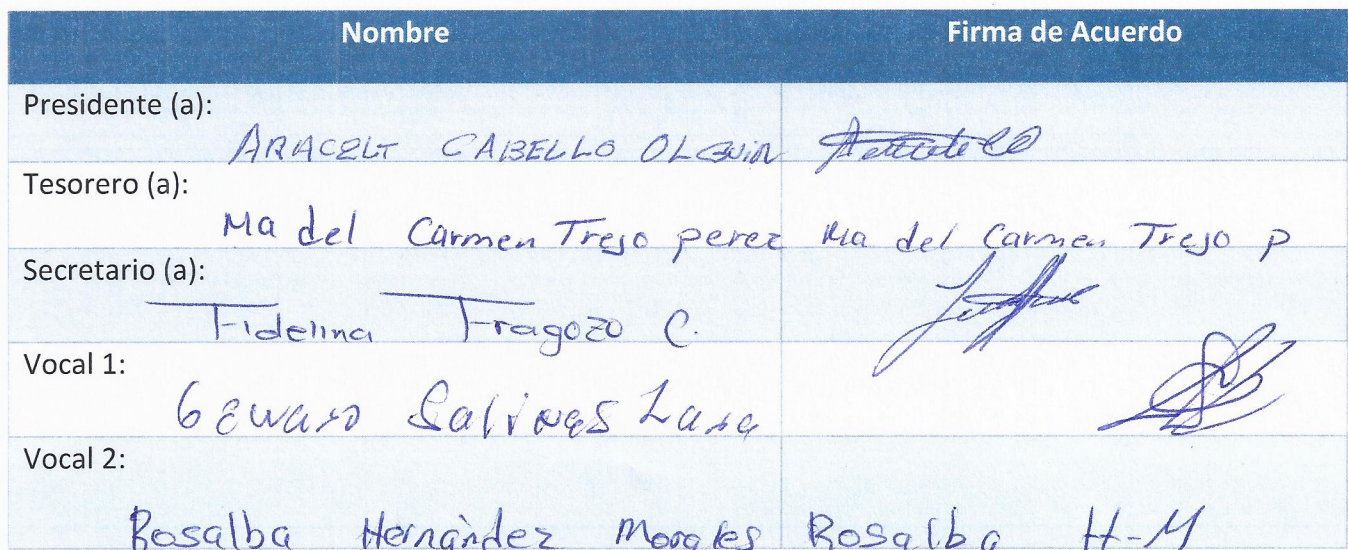 Nombre Firma de Acuerdo
Presidente (a):
ARACELI CABELLO OLGUIN
Tesorero (a):
Ma del Carmen Trejo perez Ma del Carmen Trejo p
Secretario (a):
Fidelina Fragozo C.
Vocal 1:
Genaro Salinas Lara
Vocal 2:
Rosalba Hernández Morales Rosalba H-M